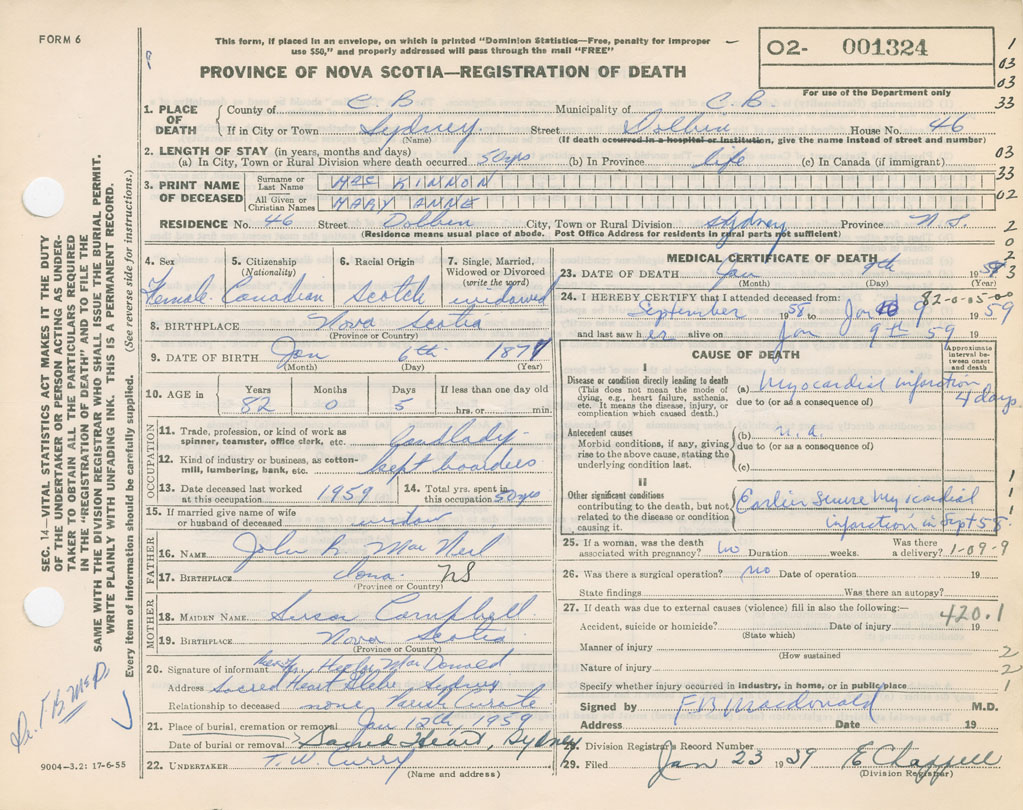 FORM 6
This form, if placed in an envelope, on which is printed "Dominion Statistics—Free, penalty for improper
use $50," and properly addressed will pass through the mail "FREE"
PROVINCE OF NOVA SCOTIA—REGISTRATION OF DEATH
O2- 001324
For use of the Department only
1
03
03
33
03
33
02
2
0
2
3
1. PLACE OF DEATH { County of C B Municipality of C. B
If in City or Town Sydney. Street Dolbin House No. 46
(Name) (If death occurred in a hospital or institution, give the name instead of street and number)
2. LENGTH OF STAY (in years, months and days)
(a) In City, Town or Rural Division where death occurred 50 yrs (b) In Province life (c) In Canada (if immigrant)
3. PRINT NAME OF DECEASED { Surname or Last Name MAC KINNON
All Given or Christian Names MARY ANNE
RESIDENCE No. 46 Street Dolben City, Town or Rural Division Sydney Province N.S.
(Residence means usual place of abode. Post Office Address for residents in rural parts not sufficient)
4. Sex Female
5. Citizenship (Nationality) Canadian
6. Racial Origin Scotch
7. Single, Married, Widowed or Divorced (write the word) widowed
8. BIRTHPLACE Nova Scotia
(Province or Country)
9. DATE OF BIRTH Jan 6th 1877
(Month) (Day) (Year)
10. AGE in Years 82 Months 0 Days 5 If less than one day old hrs. or min.
OCCUPATION
11. Trade, profession, or kind of work as spinner, teamster, office clerk, etc. Landlady
12. Kind of industry or business, as cotton-mill, lumbering, bank, etc. kept boarders
13. Date deceased last worked at this occupation 1959 14. Total yrs. spent in this occupation 50 yrs
15. If married give name of wife or husband of deceased widow
FATHER
16. NAME John R Mac Neil
17. BIRTHPLACE Iona NS
(Province or Country)
MOTHER
18. MAIDEN NAME Susan Campbell
19. BIRTHPLACE Nova Scotia
(Province or Country)
20. Signature of informant Mac Donald
Address Sacred Heart Glebe Sydney
Relationship to deceased none Parish Curate
21. Place of burial, cremation or removal Jan 12th, 1959
Date of burial or removal Sacred Heart, Sydney
22. UNDERTAKER T. W. Curry
(Name and address)
MEDICAL CERTIFICATE OF DEATH
23. DATE OF DEATH Jan 9th 1958
(Month) (Day) (Year)
82-0-05-00
24. I HEREBY CERTIFY that I attended deceased from:
September 1958 to Jan 9 1959
and last saw her alive on Jan 9th 59 19
CAUSE OF DEATH
Approximate interval between onset and death
I
Disease or condition directly leading to death
(This does not mean the mode of dying, e.g., heart failure, asthenia, etc. It means the disease, injury, or complication which caused death.)
(a) Myocardial infarction 4 days
due to (or as a consequence of)
Antecedent causes
Morbid conditions, if any, giving rise to the above cause, stating the underlying condition last.
(b) n.a.
due to (or as a consequence of)
(c)
II
Other significant conditions contributing to the death, but not related to the disease or condition causing it.
Earlier severe myocardial
infarction in Sept 58
1
1
1
25. If a woman, was the death associated with pregnancy? no Duration weeks. Was there a delivery? 1-09-9
26. Was there a surgical operation? no Date of operation 19
State findings Was there an autopsy?
27. If death was due to external causes (violence) fill in also the following:— 420.1
Accident, suicide or homicide? Date of injury 19
(State which)
Manner of injury 2
(How sustained
Nature of injury 2
Specify whether injury occurred in industry, in home, or in public place 1
Signed by F B Macdonald M.D.
Address Date 19
Division Registrar's Record Number
29. Filed Jan 23 1959 E Chappell
(Division Registrar)
SEC. 14—VITAL STATISTICS ACT MAKES IT THE DUTY
OF THE UNDERTAKER OR PERSON ACTING AS UNDER-
TAKER TO OBTAIN ALL THE PARTICULARS REQUIRED
IN THE "REGISTRATION OF DEATH" AND TO FILE THE
SAME WITH THE DIVISION REGISTRAR WHO SHALL ISSUE THE BURIAL PERMIT.
WRITE PLAINLY WITH UNFADING INK. THIS IS A PERMANENT RECORD.
Every item of information should be carefully supplied. (See reverse side for instructions.)
9004-3.2: 17-6-55